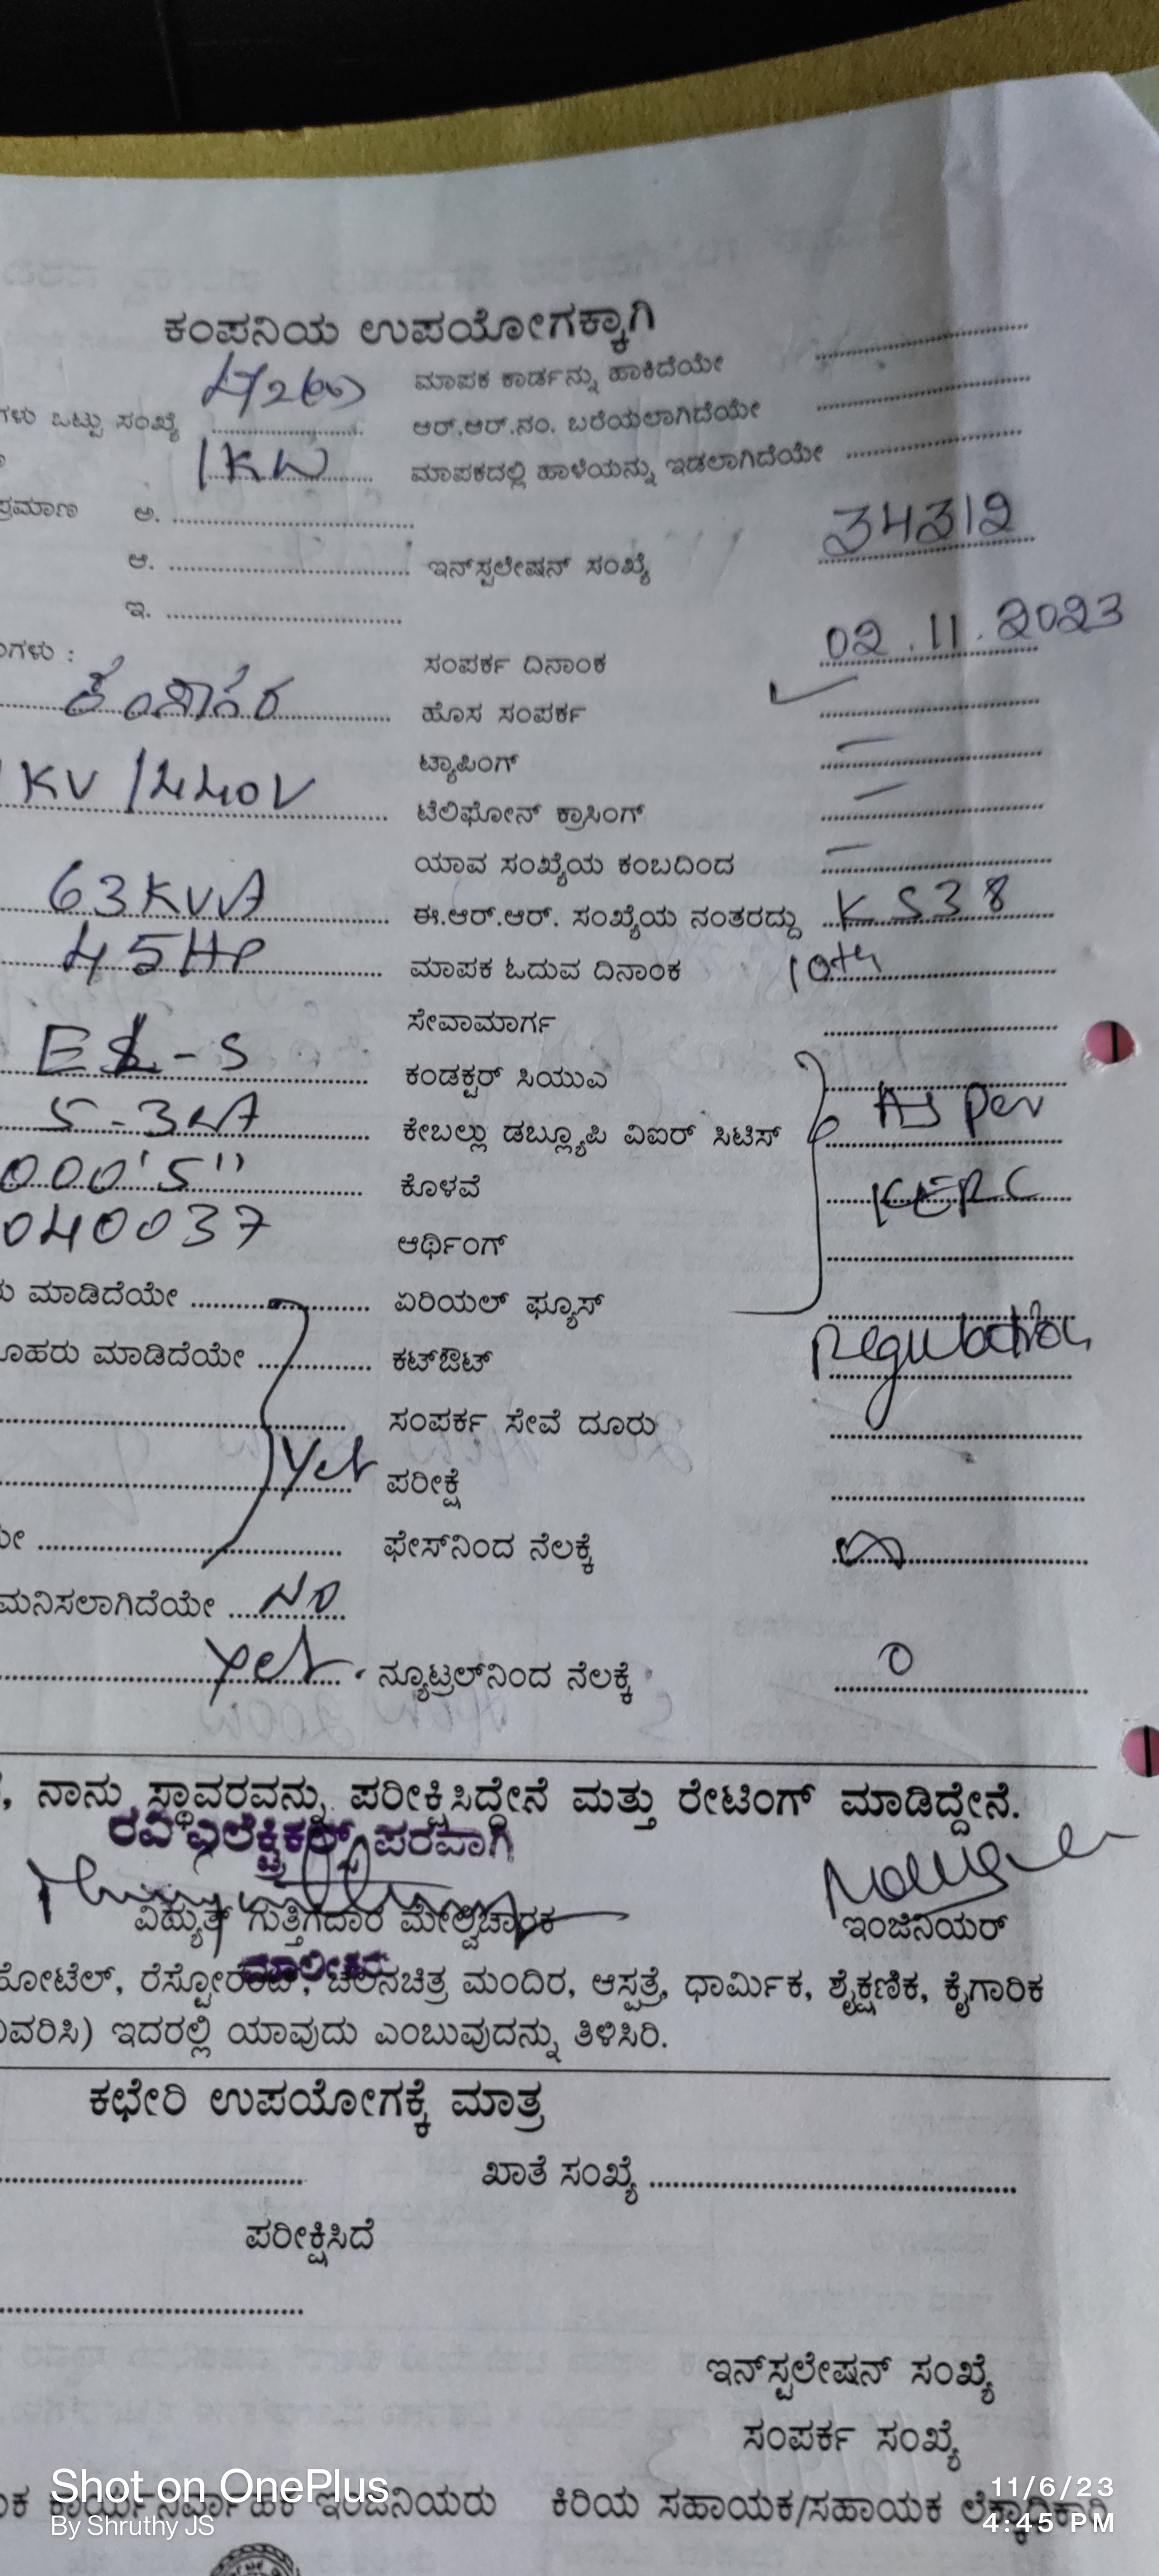 ಕಂಪನಿಯ ಉಪಯೋಗಕ್ಕಾಗಿ
ಮಾಪಕ ಕಾರ್ಡನ್ನು ಹಾಕಿದೆಯೇ
ಗಳು ಒಟ್ಟು ಸಂಖ್ಯೆ ಆರ್.ಆರ್.ನಂ. ಬರೆಯಲಾಗಿದೆಯೇ
1KW ಮಾಪಕದಲ್ಲಿ ಹಾಳೆಯನ್ನು ಇಡಲಾಗಿದೆಯೇ
ಪ್ರಮಾಣ ಅ.
ಆ. ಇನ್‌ಸ್ಟಲೇಷನ್ ಸಂಖ್ಯೆ 34312
ಇ.
ಗಳು : ಸಂಪರ್ಕ ದಿನಾಂಕ 02.11.2023
ಹೊಸ ಸಂಪರ್ಕ ✓
ಟ್ಯಾಪಿಂಗ್ –
KV/440V ಟೆಲಿಫೋನ್ ಕ್ರಾಸಿಂಗ್ –
ಯಾವ ಸಂಖ್ಯೆಯ ಕಂಬದಿಂದ –
63KVA ಈ.ಆರ್.ಆರ್. ಸಂಖ್ಯೆಯ ನಂತರದ್ದು KS38
45HP ಮಾಪಕ ಓದುವ ದಿನಾಂಕ 10th
ಸೇವಾಮಾರ್ಗ
-S ಕಂಡಕ್ಟರ್ ಸಿಯುಎ As per
5-30A ಕೇಬಲ್ಲು ಡಬ್ಲ್ಯೂಪಿ ವಿಐರ್ ಸಿಟಿಸ್
000'5'' ಕೊಳವೆ KERC
040037 ಆರ್ಥಿಂಗ್
ಮಾಡಿದೆಯೇ ಏರಿಯಲ್ ಫ್ಯೂಸ್
ಮೊಹರು ಮಾಡಿದೆಯೇ ಕಟ್‌ಔಟ್ Regulation
ಸಂಪರ್ಕ ಸೇವೆ ದೂರು
Yes ಪರೀಕ್ಷೆ
ಫೇಸ್‌ನಿಂದ ನೆಲಕ್ಕೆ
ಮನಿಸಲಾಗಿದೆಯೇ No
Yes. ನ್ಯೂಟ್ರಲ್‌ನಿಂದ ನೆಲಕ್ಕೆ 0
, ನಾನು ಸ್ಥಾವರವನ್ನು ಪರೀಕ್ಷಿಸಿದ್ದೇನೆ ಮತ್ತು ರೇಟಿಂಗ್ ಮಾಡಿದ್ದೇನೆ.
ರವಿ ಎಲೆಕ್ಟ್ರಿಕಲ್ಸ್ ಪರವಾಗಿ
ವಿದ್ಯುತ್ ಗುತ್ತಿಗೆದಾರ ಮೇಲ್ವಿಚಾರಕ ಇಂಜಿನಿಯರ್
ಮಾಲೀಕರು
ಹೋಟೆಲ್, ರೆಸ್ಟೋರೆಂಟ್, ಚಲನಚಿತ್ರ ಮಂದಿರ, ಆಸ್ಪತ್ರೆ, ಧಾರ್ಮಿಕ, ಶೈಕ್ಷಣಿಕ, ಕೈಗಾರಿಕ
ವಿವರಿಸಿ) ಇದರಲ್ಲಿ ಯಾವುದು ಎಂಬುವುದನ್ನು ತಿಳಿಸಿರಿ.
ಕಛೇರಿ ಉಪಯೋಗಕ್ಕೆ ಮಾತ್ರ
ಖಾತೆ ಸಂಖ್ಯೆ
ಪರೀಕ್ಷಿಸಿದೆ
ಇನ್‌ಸ್ಟಲೇಷನ್ ಸಂಖ್ಯೆ
ಸಂಪರ್ಕ ಸಂಖ್ಯೆ
ಕಾರ್ಯನಿರ್ವಾಹಕ ಇಂಜಿನಿಯರು ಕಿರಿಯ ಸಹಾಯಕ/ಸಹಾಯಕ ಲೆಕ್ಕಾಧಿಕಾರಿ
Shot on OnePlus
By Shruthy JS
11/6/23
4:45 PM